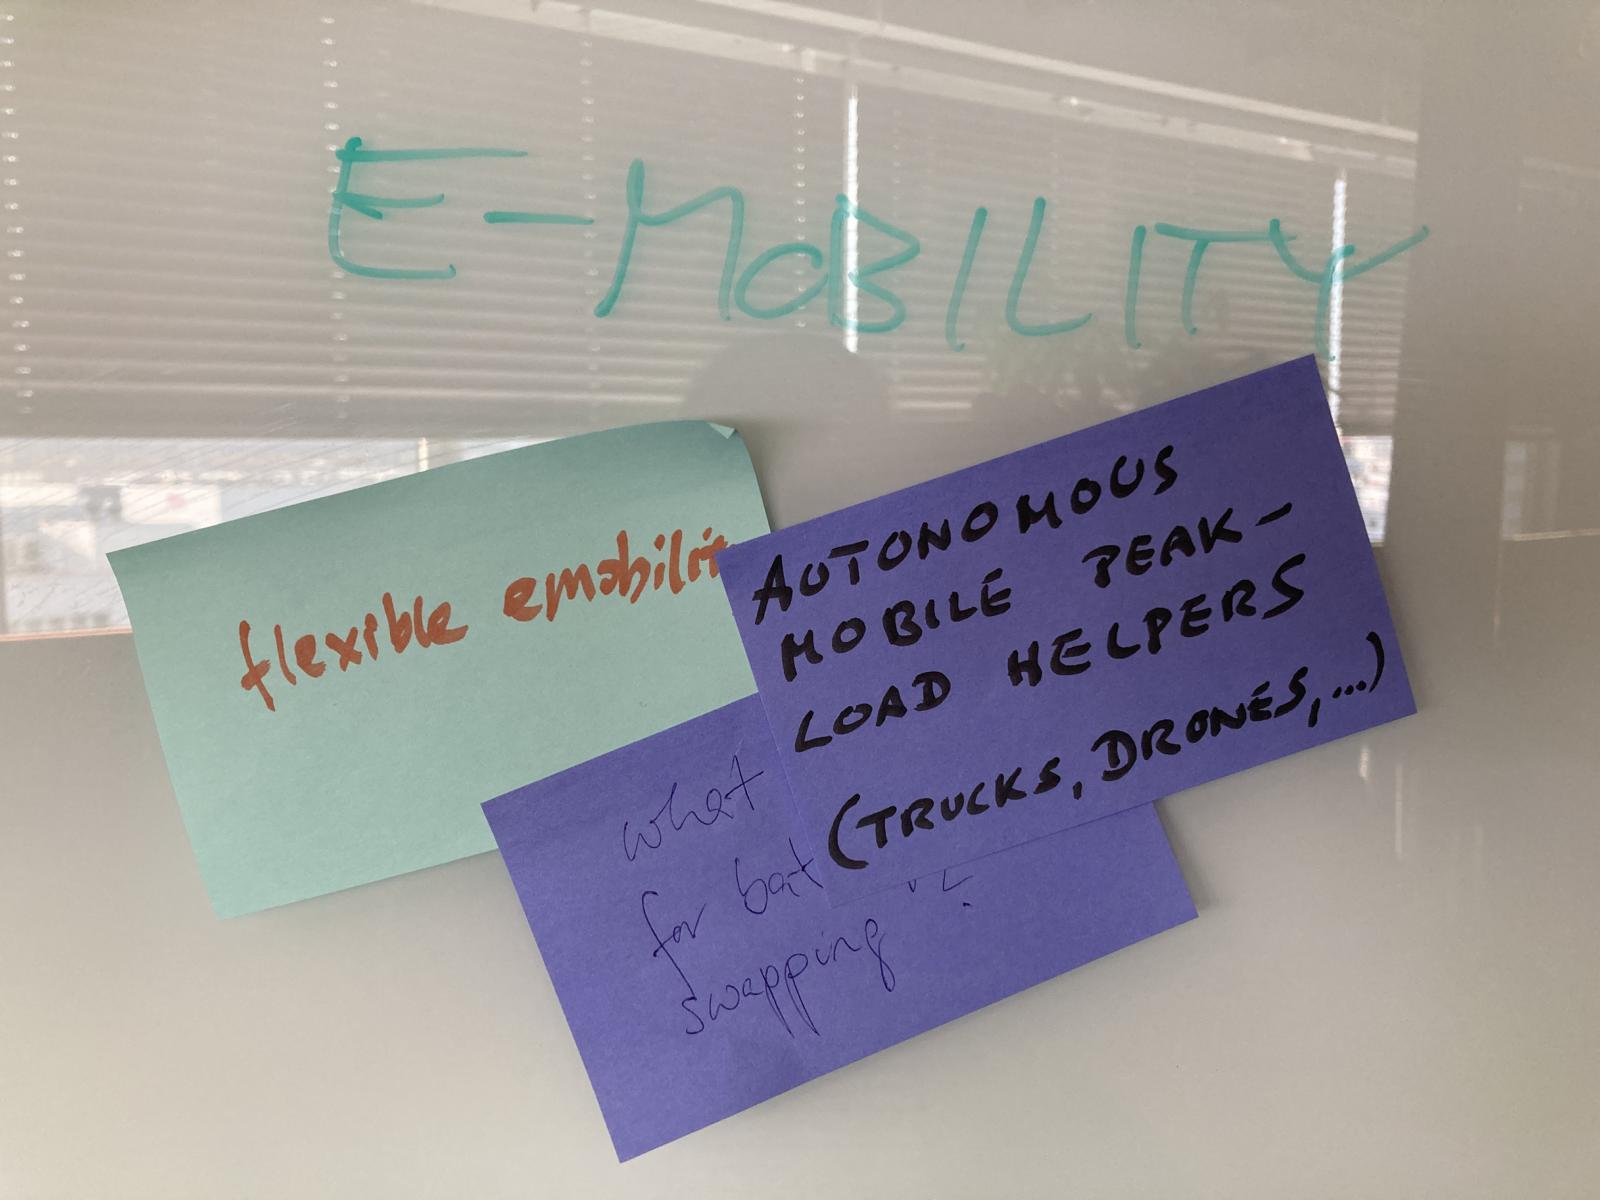 E-MOBILITY
flexible emobilit
AUTONOMOUS
MOBILE PEAK-
LOAD HELPERS
(TRUCKS, DRONES, ...)
what
for bat
swapping ?